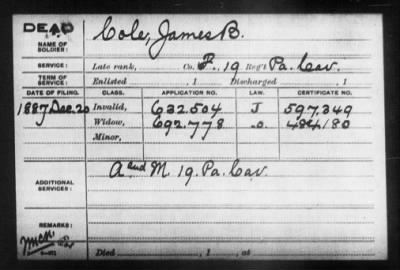 DEAD
NAME OF SOLDIER: Cole, James B.
SERVICE: Late rank, Co. F, 19 Reg't Pa. Cav.
TERM OF SERVICE: Enlisted , 1 Discharged , 1
DATE OF FILING. CLASS. APPLICATION NO. LAW. CERTIFICATE NO.
1887 Dec. 20 Invalid, 632.504 J 597.349
Widow, 692.778 484180
Minor,
ADDITIONAL SERVICES: A and M 19. Pa. Cav.
REMARKS:
Died , 1 , at